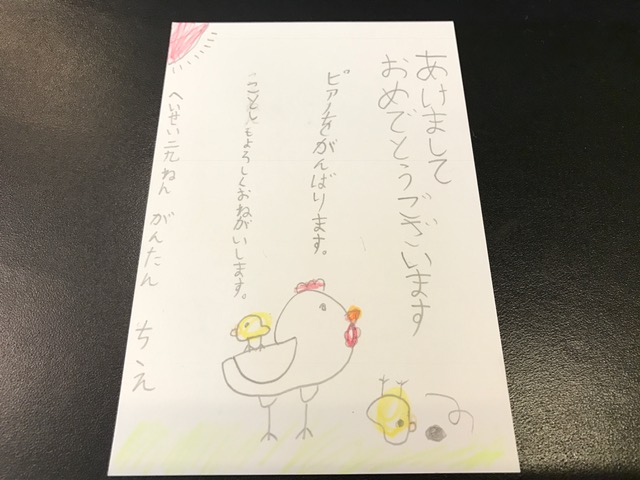 あけまして
おめでとうございます
ピアノをがんばります。
ことしもよろしくおねがいします。
へいせい二九ねん がんたん ちえ